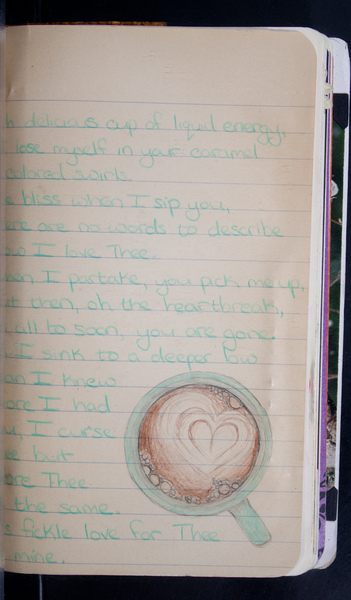 delicious cup of liquid energy,
lose myself in your caramel
colored swirls.
bliss when I sip you,
are no words to describe
I love Thee.
I partake, you pick me up,
then, oh the heartbreak,
all to soon, you are gone.
I sink to a deeper low
I knew
I had
I curse
but
Thee
the same.
fickle love for Thee
mine.